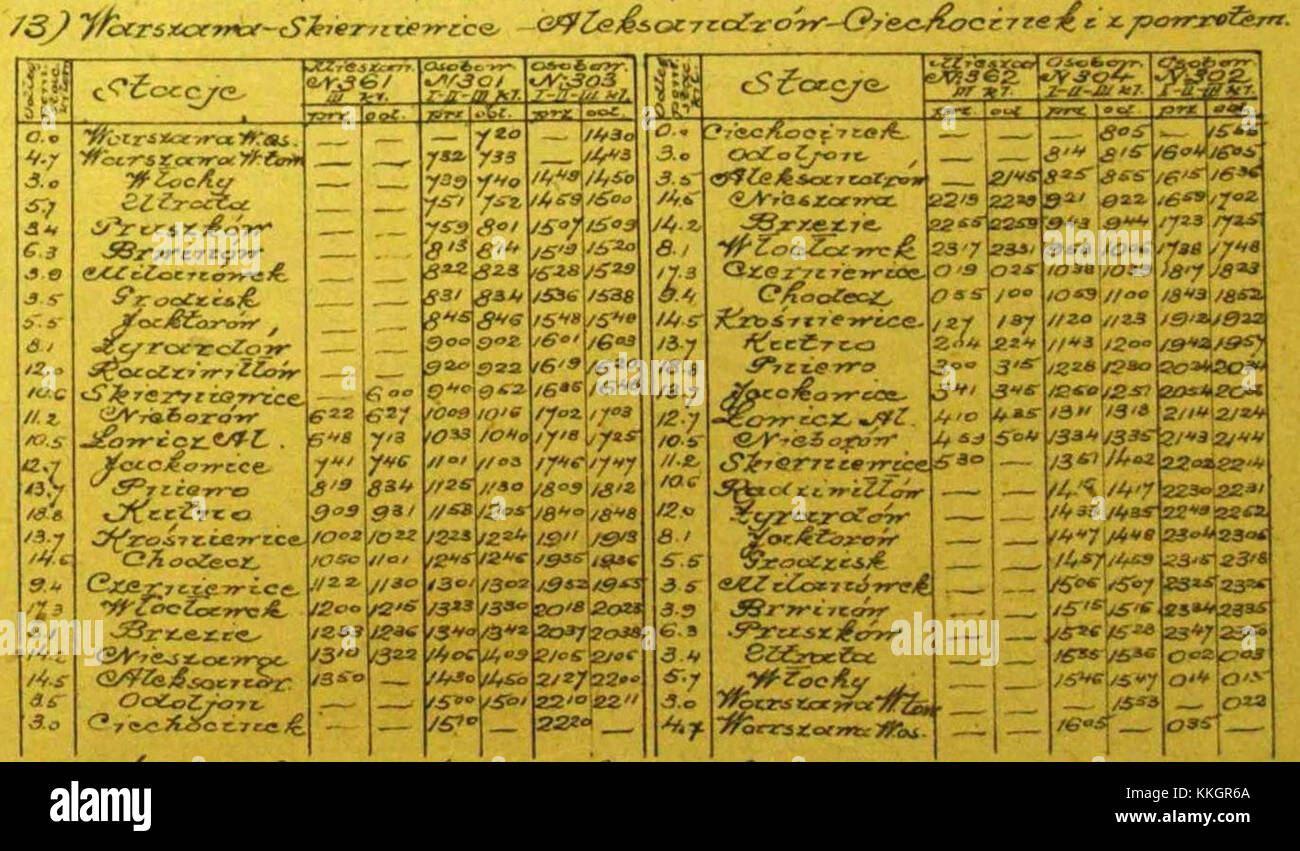 13) Warszawa-Skierniewice -Aleksandrów-Ciechocinek i z powrotem.
Stacje Mieszan. Osobow. Osobow. Stacje Mieszan Osobow. Osobow.
№361 №301 №303 №362 №304 №302
III kl. I-II-III kl. I-II-III kl. III kl. I-II-III kl. I-II-III kl.
prz. od. prz od. prz od. prz od prz od. prz od.
0.0 Warszawa W.os. — — — 720 — 1430 0.0 Ciechocinek — — — 805 —
4.7 Warszawa W.tow — — 732 733 — 1443 3.0 Odoljon — — 814 815 1604 1605
3.0 Włochy — — 739 740 1449 1450 3.5 Aleksandrów — 2145 825 855 1615 1636
5.7 Utrata — — 751 752 1459 1500 14.5 Nieszawa 2219 2229 921 922 1659 1702
3.4 Pruszków — — 759 801 1507 1509 14.2 Brzezie 2255 2259 943 944 1723 1725
6.3 Brwinów — — 813 814 1519 1520 8.1 Włocławek 2317 2331 1006 1738 1748
3.9 Milanówek — — 822 823 1528 1529 17.3 Czerniewice 019 025 1038 1039 1817 1823
3.5 Grodzisk — — 831 834 1536 1538 9.4 Chodecz 055 100 1059 1100 1843 1852
5.5 Jaktorów — — 845 846 1548 1549 14.5 Krośniewice 127 137 1120 1123 1912 1922
8.1 Żyrardów — — 900 902 1601 1603 13.7 Kutno 204 224 1143 1200 1942 1957
12.0 Radziwiłłów — — 920 922 1619 1620 18.8 Pniewo 300 315 1228 1230 2024 2034
10.6 Skierniewice — 600 940 952 1635 13.7 Jackowice 341 345 1250 1251 2054
11.2 Nieborów 622 627 1009 1016 1702 1703 12.7 Łowicz Al. 410 435 1311 1313 2114 2124
10.5 Łowicz Al. 648 713 1033 1040 1718 1725 10.5 Nieborów 453 504 1334 1335 2143 2144
12.7 Jackowice 741 746 1101 1103 1746 1747 11.2 Skierniewice 530 — 1351 1402 2202 2214
13.7 Pniewo 819 834 1125 1130 1809 1812 10.6 Radziwiłłów — — 1416 1417 2230 2231
18.8 Kutno 909 931 1158 1205 1840 1848 12.0 Żyrardów — — 1433 1435 2249 2252
13.7 Krośniewice 1002 1022 1223 1224 1911 1913 8.1 Jaktorów — — 1447 1448 2304 2305
14.5 Chodecz 1050 1101 1245 1246 1935 1936 5.5 Grodzisk — — 1457 1459 2315 2318
9.4 Czerniewice 1122 1130 1301 1302 1952 1955 3.5 Milanówek — — 1506 1507 2325 2326
17.3 Włocławek 1200 1215 1323 1330 2018 2023 3.9 Brwinów — — 1515 1516 2334 2335
8.1 Brzezie 1233 1236 1340 1342 2037 2038 6.3 Pruszków — — 1526 1528 2347
14.2 Nieszawa 1318 1322 1406 1409 2105 2106 3.4 Utrata — — 1535 1536 002 003
14.5 Aleksandr. 1350 — 1430 1450 2127 2200 5.7 Włochy — — 1546 1547 014 015
3.5 Odoljon — — 1500 1501 2210 2211 3.0 Warszawa W.tow — — — 1553 — 022
3.0 Ciechocinek — — 1510 — 2220 — 4.7 Warszawa W.os. — — 1605 — 035 —
alamy
alamy stock photo
KKGR6A
www.alamy.com